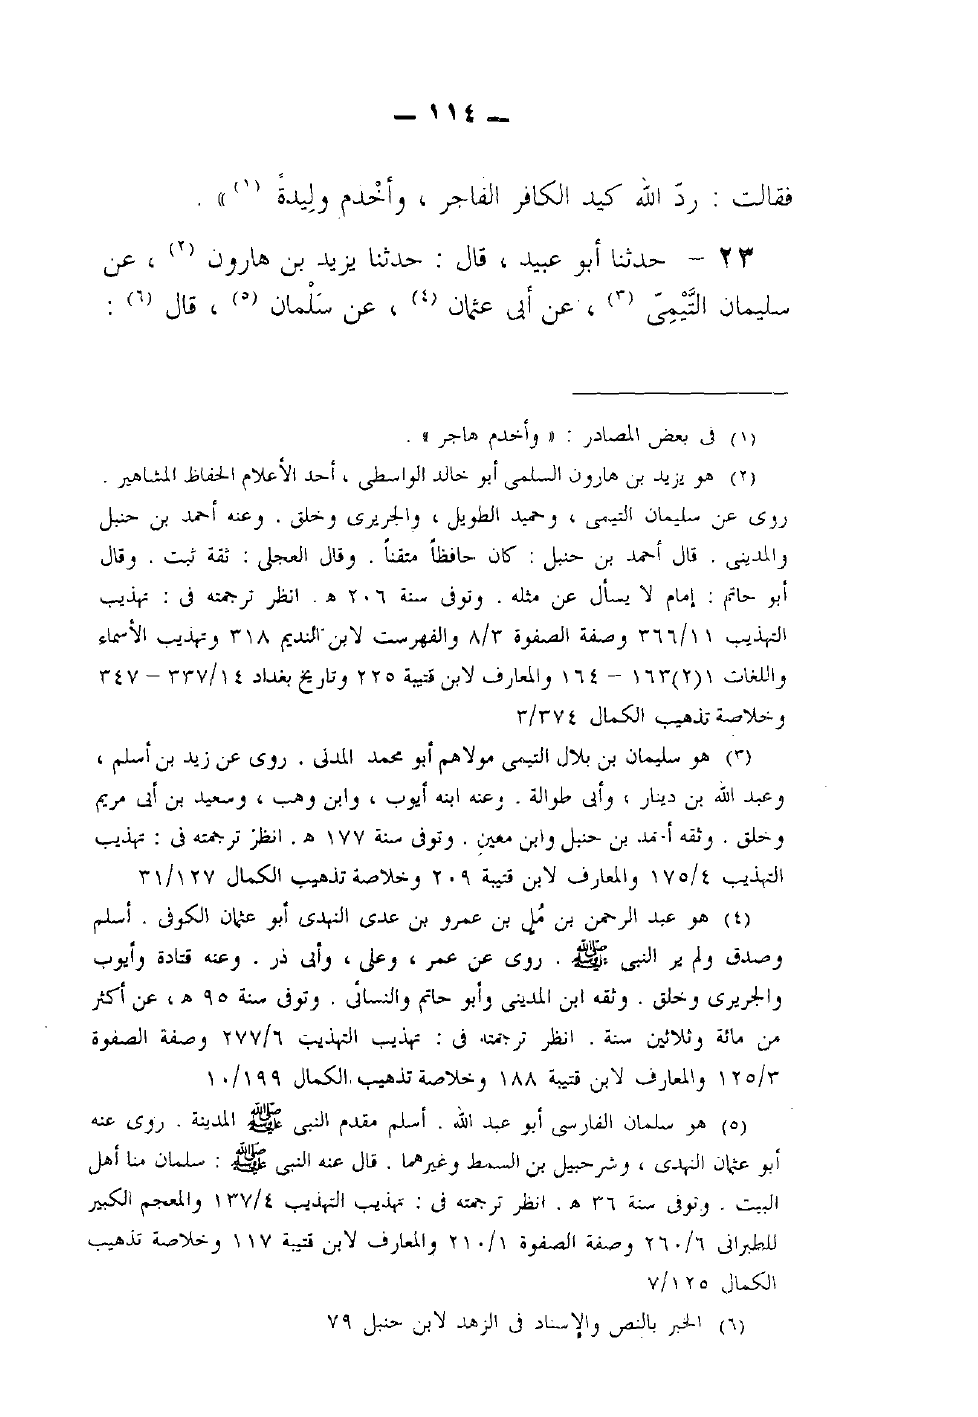 — ١١٤ —
فقالت : ردّ الله كيد الكافر الفاجر ، وأخْدم ولِيدةً (١) » .
٢٣ – حدثنا أبو عبيد ، قال : حدثنا يزيد بن هارون (٢) ، عن
سليمان التَّيْمِىّ (٣) ، عن أبى عثمان (٤) ، عن سَلْمان (٥) ، قال (٦) :
(١) فى بعض المصادر : « وأخدم هاجر » .
(٢) هو يزيد بن هارون السلمى أبو خالد الواسطى ، أحد الأعلام الحفاظ المشاهير .
روى عن سليمان التيمى ، وحميد الطويل ، والجريرى وخلق . وعنه أحمد بن حنبل
والمدينى . قال أحمد بن حنبل : كان حافظاً متقناً . وقال العجلى : ثقة ثبت . وقال
أبو حاتم : إمام لا يسأل عن مثله . وتوفى سنة ٢٠٦ ه . انظر ترجمته فى : تهذيب
التهذيب ٣٦٦/١١ وصفة الصفوة ٨/٣ والفهرست لابن النديم ٣١٨ وتهذيب الأسماء
واللغات ١(٢)١٦٣ – ١٦٤ والمعارف لابن قتيبة ٢٢٥ وتاريخ بغداد ٣٣٧/١٤ – ٣٤٧
وخلاصة تذهيب الكمال ٣/٣٧٤
(٣) هو سليمان بن بلال التيمى مولاهم أبو محمد المدنى . روى عن زيد بن أسلم ،
وعبد الله بن دينار ، وأبى طوالة . وعنه ابنه أيوب ، وابن وهب ، وسعيد بن أبى مريم
وخلق . وثقه أحمد بن حنبل وابن معين . وتوفى سنة ١٧٧ ه . انظر ترجمته فى : تهذيب
التهذيب ١٧٥/٤ والمعارف لابن قتيبة ٢٠٩ وخلاصة تذهيب الكمال ٣١/١٢٧
(٤) هو عبد الرحمن بن مُل بن عمرو بن عدى النهدى أبو عثمان الكوفى . أسلم
وصدق ولم ير النبى ﷺ . روى عن عمر ، وعلى ، وأبى ذر . وعنه قتادة وأيوب
والجريرى وخلق . وثقه ابن المدينى وأبو حاتم والنسائى . وتوفى سنة ٩٥ ه ، عن أكثر
من مائة وثلاثين سنة . انظر ترجمته فى : تهذيب التهذيب ٢٧٧/٦ وصفة الصفوة
١٢٥/٣ والمعارف لابن قتيبة ١٨٨ وخلاصة تذهيب الكمال ١٠/١٩٩
(٥) هو سلمان الفارسى أبو عبد الله . أسلم مقدم النبى ﷺ المدينة . روى عنه
أبو عثمان النهدى ، وشرحبيل بن السمط وغيرهما . قال عنه النبى ﷺ : سلمان منا أهل
البيت . وتوفى سنة ٣٦ ه . انظر ترجمته فى : تهذيب التهذيب ١٣٧/٤ والمعجم الكبير
للطبرانى ٢٦٠/٦ وصفة الصفوة ٢١٠/١ والمعارف لابن قتيبة ١١٧ وخلاصة تذهيب
الكمال ٧/١٢٥
(٦) الخبر بالنص والإسناد فى الزهد لابن حنبل ٧٩